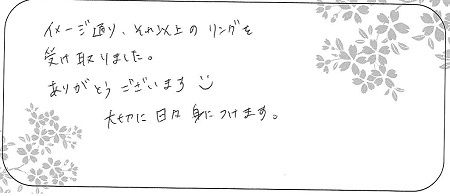 イメージ通り、それ以上のリングを
受け取りました。
ありがとうございます
大切に日々身につけます。